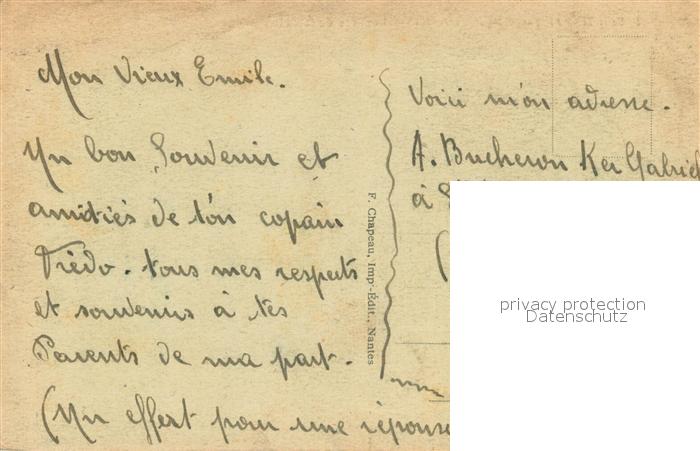 Mon Vieux Emile.
Un bon Souvenir et
amitiés de ton copain
Frédo. tous mes respects
et souvenirs à tes
Parents de ma part.
(Un effort pour une réponse
F. Chapeau, Impr-Édit., Nantes
Voici mon adresse.
A. Bucheron Ker Gabriel
à
privacy protection
Datenschutz